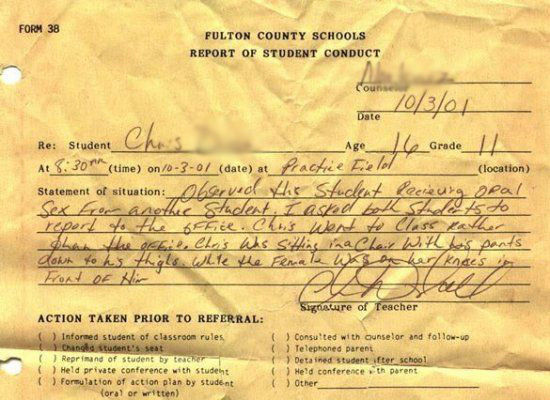 FORM 38
FULTON COUNTY SCHOOLS
REPORT OF STUDENT CONDUCT
10/3/01
Date
Re: Student Chris Age 16 Grade 11
At 8:30 (time) on 10-3-01 (date) at Practice Field (location)
Statement of situation: Observed this Student Recieving oral
Sex From another Student. I asked both Students to
report to the office. Chris Went to Class Rather
than the office. Chris Was Sitting in a Chair With his pants
down to his thighs. While the Female Was on her knees in
Front of Him
Signature of Teacher
ACTION TAKEN PRIOR TO REFERRAL:
( ) Informed student of classroom rules
( ) Changed student's seat
( ) Reprimand of student by teacher
( ) Held private conference with student
( ) Formulation of action plan by student
(oral or written)
( ) Consulted with counselor and follow-up
( ) Telephoned parent
( ) Detained student after school
( ) Held conference with parent
( ) Other